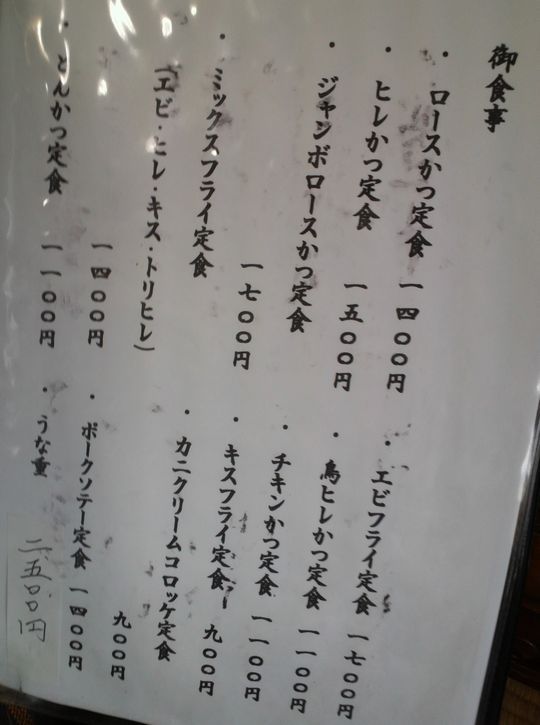 御食事
・ロースかつ定食 一四〇〇円
・ヒレかつ定食 一五〇〇円
・ジャンボロースかつ定食
一七〇〇円
・ミックスフライ定食
(エビ・ヒレ・キス・トリヒレ)
一四〇〇円
・とんかつ定食 一一〇〇円
・エビフライ定食 一七〇〇円
・鳥ヒレかつ定食 一一〇〇円
・チキンかつ定食 一一〇〇円
・キスフライ定食 九〇〇円
・カニクリームコロッケ定食
九〇〇円
・ポークソテー定食 一四〇〇円
・うな重 二五〇〇円